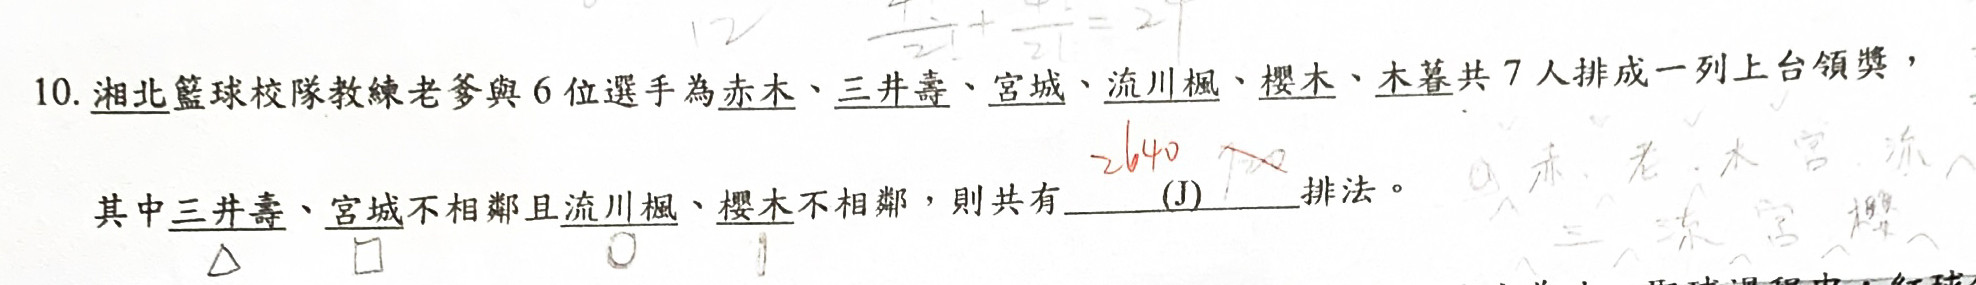 12
10. 湘北籃球校隊教練老爹與 6 位選手為赤木、三井壽、宮城、流川楓、櫻木、木暮共 7 人排成一列上台領獎，
2640 720
其中三井壽、宮城不相鄰且流川楓、櫻木不相鄰，則共有 (J) 排法。
赤 老 木 宮 流
三 流 宮 櫻